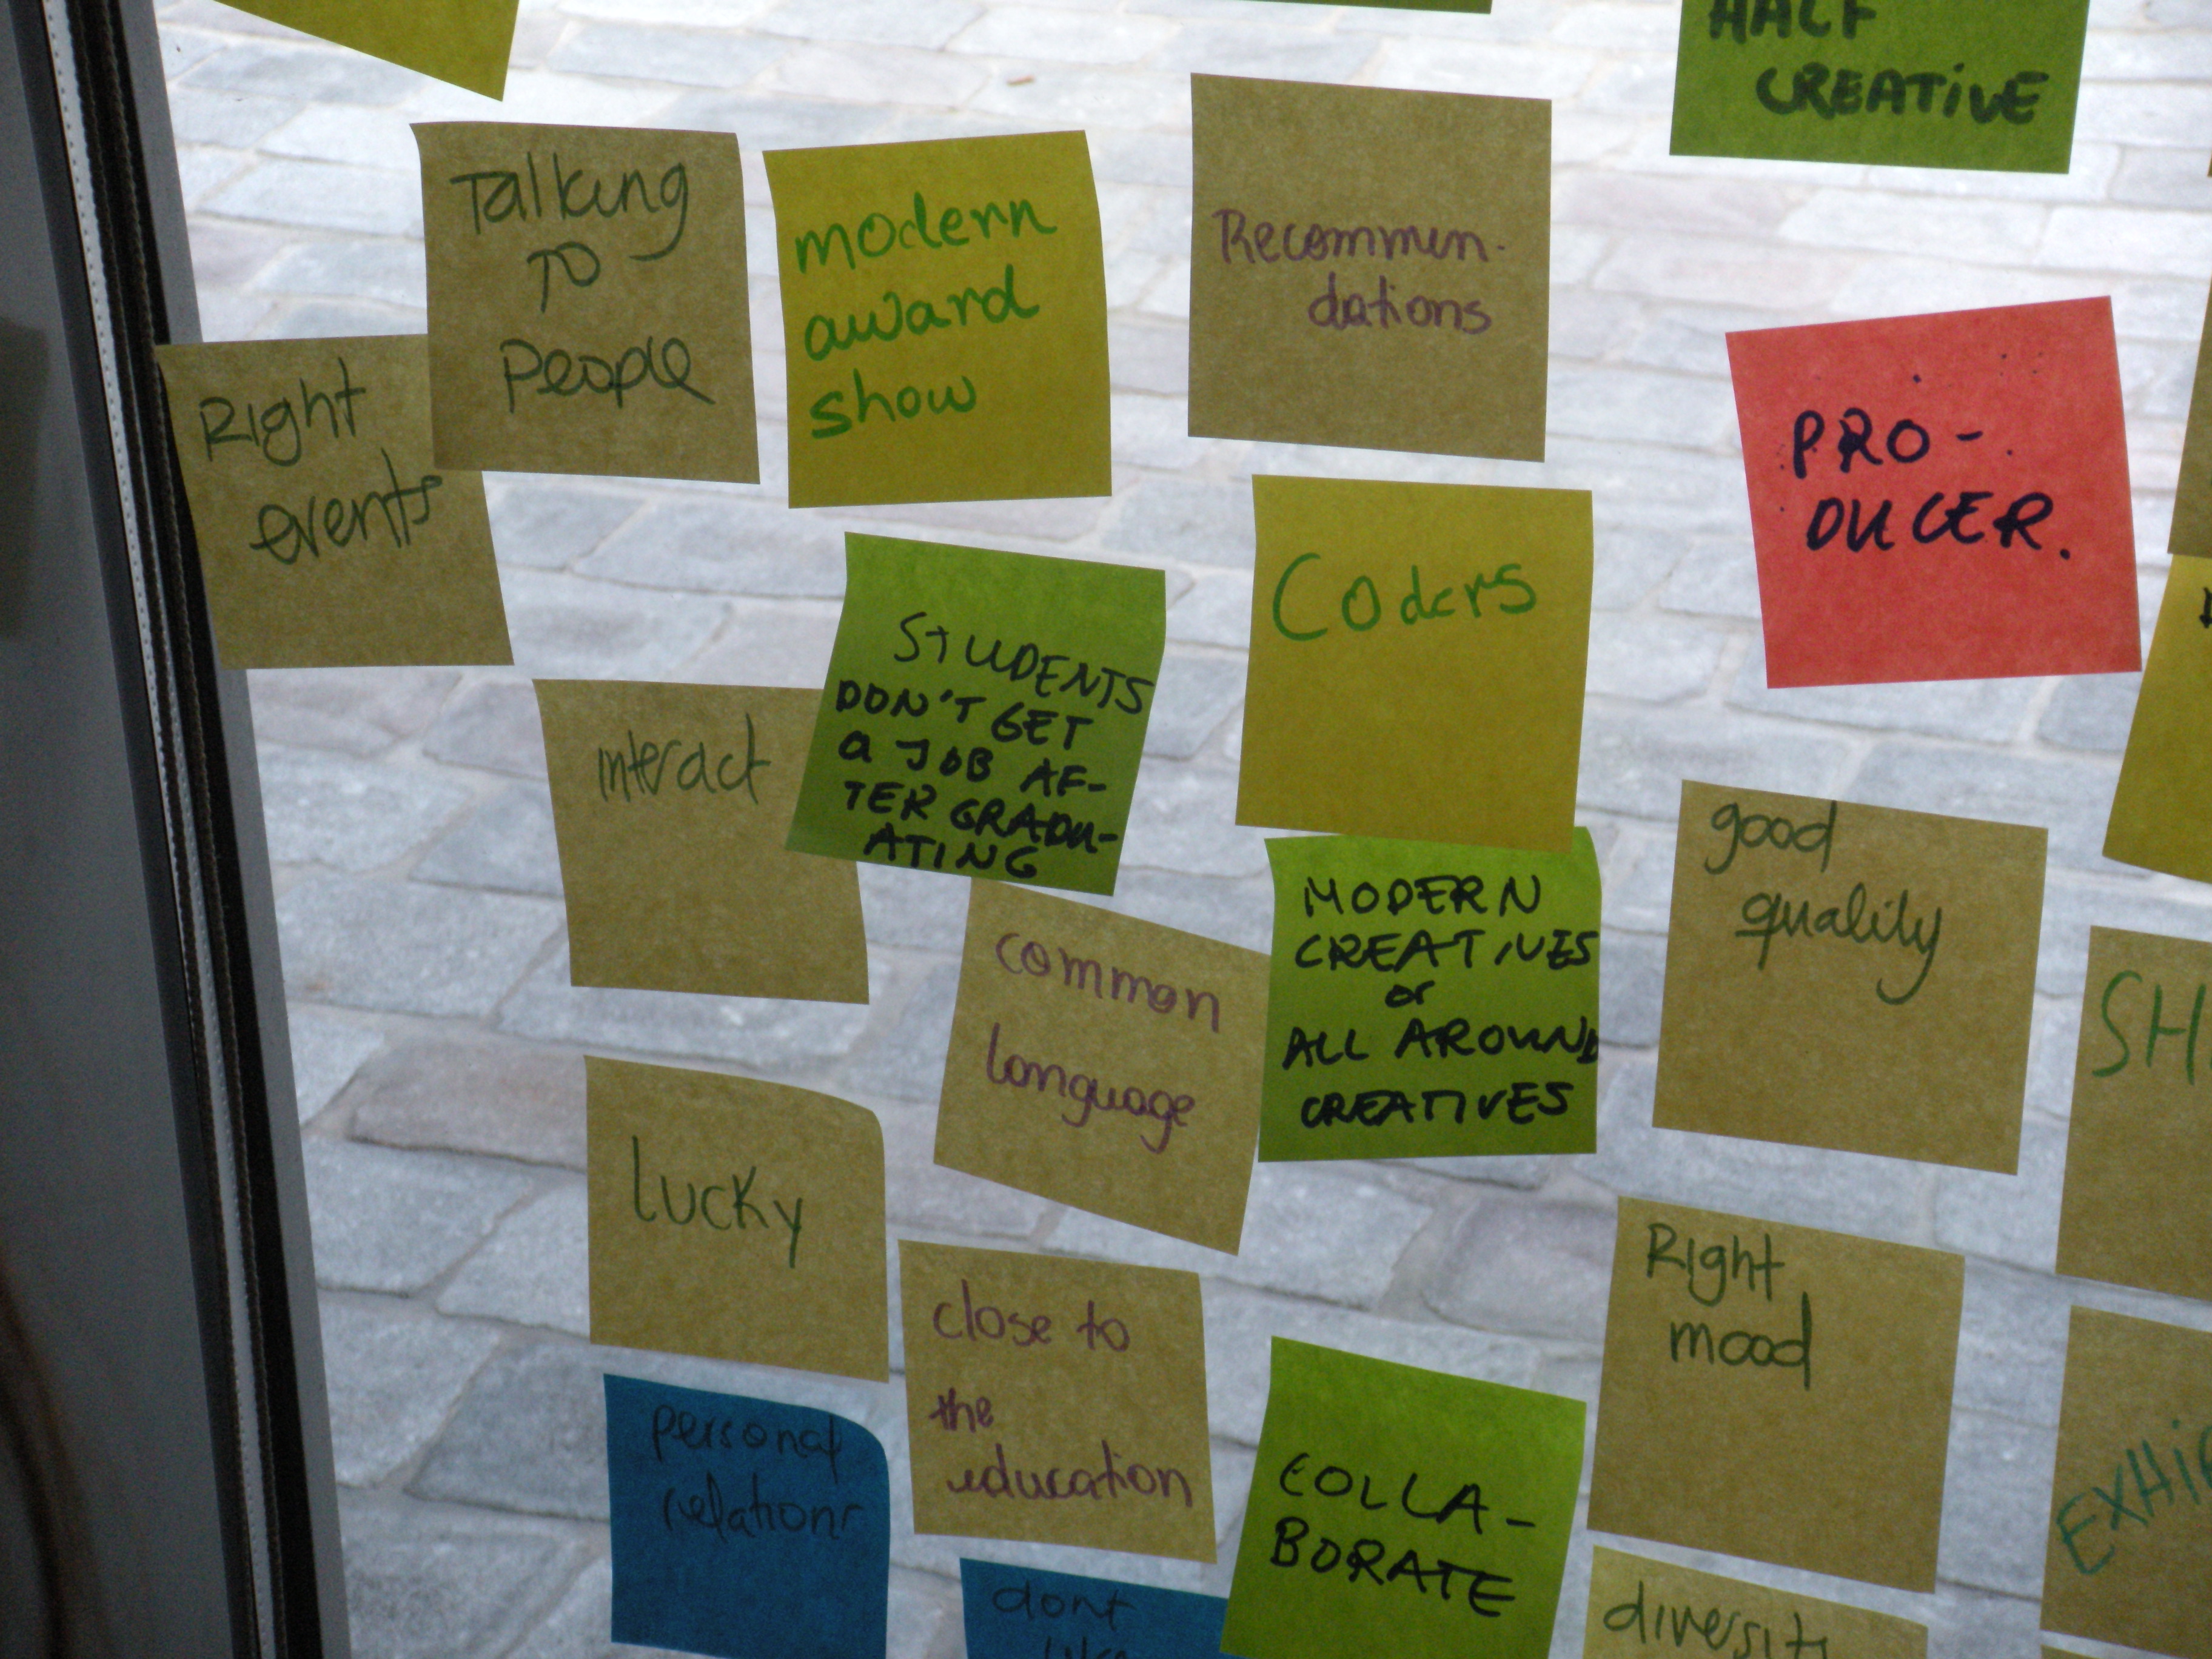 HALF
CREATIVE
Talking
TO
People
modern
award
show
Recommen-
dations
Right
events
PRO-
DUCER.
STUDENTS
DON'T GET
a JOB AF-
TER GRADU-
ATING
Coders
interact
good
quality
common
language
MODERN
CREATIVES
or
ALL AROUND
CREATIVES
SH
lucky
Right
mood
close to
the
education
personal
relations
COLLA-
BORATE
EXHI
dont
diversit